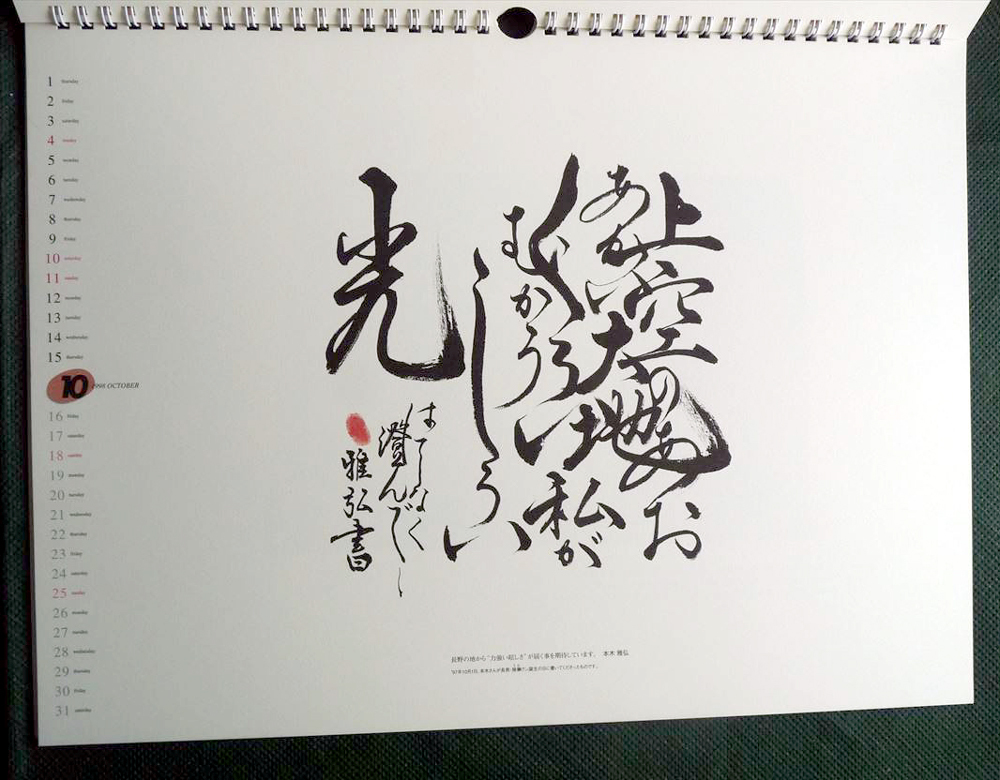 1 thursday
2 friday
3 saturday
4 sunday
5 monday
6 tuesday
7 wednesday
8 thursday
9 friday
10 saturday
11 sunday
12 monday
13 tuesday
14 wednesday
15 thursday
10 1998 OCTOBER
16 friday
17 saturday
18 sunday
19 monday
20 tuesday
21 wednesday
22 thursday
23 friday
24 saturday
25 sunday
26 monday
27 tuesday
28 wednesday
29 thursday
30 friday
31 saturday
上空のあお
あかい大地
私が
むかう
光
はてしなく
澄んで
雅弘書
長野の地から
が届く事を期待しています。 本木 雅弘